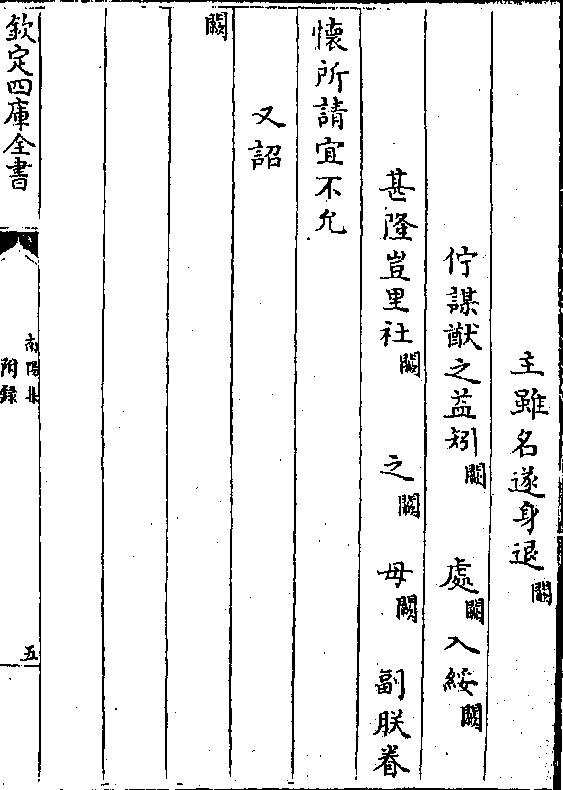 主雖名遂身退闕
佇謀猷之益矧闕處闕入綏闕
甚隆豈里社闕之闕毋闕副朕眷
懷所請宜不允
又詔
闕
欽定四庫全書
南陽集
附錄
五